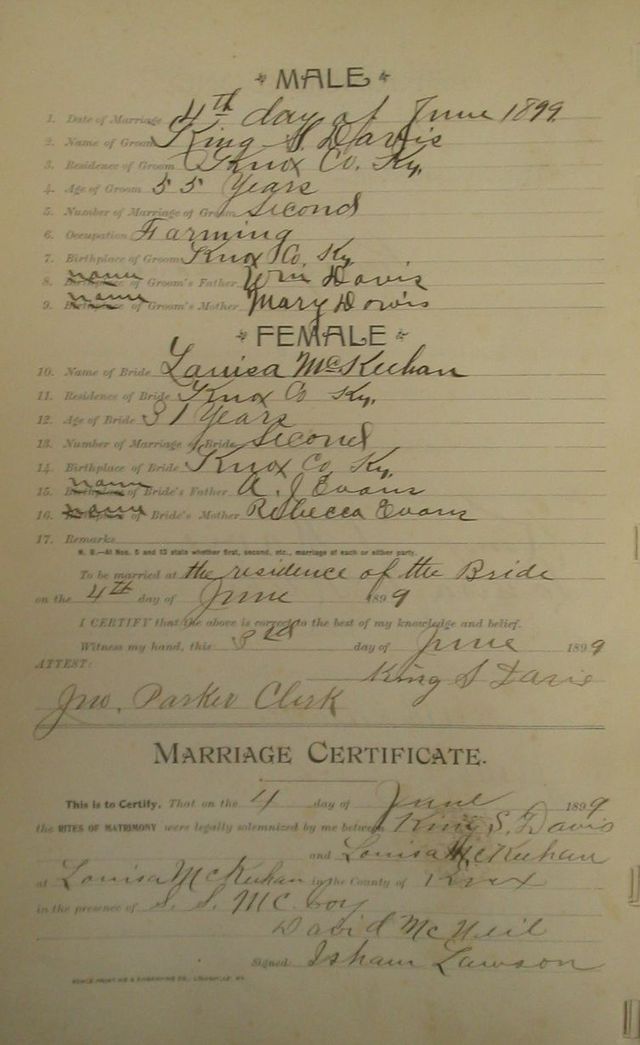 MALE
1. Date of Marriage 4th day of June 1899
2. Name of Groom King S Davis
3. Residence of Groom Knox Co. Ky.
4. Age of Groom 55 Years
5. Number of Marriage of Groom Second
6. Occupation Farming
7. Birthplace of Groom Knox Co. Ky
8. name of Groom's Father Wm Davis
9. name of Groom's Mother Mary Davis
FEMALE
10. Name of Bride Louisa McKeehan
11. Residence of Bride Knox Co Ky.
12. Age of Bride 31 Years
13. Number of Marriage of Bride Second
14. Birthplace of Bride Knox Co. Ky.
15. name of Bride's Father A. J Evans
16. name of Bride's Mother Rebecca Evans
17. Remarks
N. B.—At Nos. 5 and 13 state whether first, second, etc., marriage of each or either party.
To be married at the residence of the Bride
on the 4th day of June 1899
I CERTIFY that the above is correct to the best of my knowledge and belief.
Witness my hand, this 3rd day of June 1899
ATTEST: King S Davis
Jno. Parker Clerk
MARRIAGE CERTIFICATE.
This is to Certify. That on the 4 day of June 1899
the RITES OF MATRIMONY were legally solemnized by me between King S. Davis
and Louisa McKeehan
at Louisa McKeehan in the County of Knox
in the presence of S. S. McCroy
David McNeil
Signed Isham Lawson